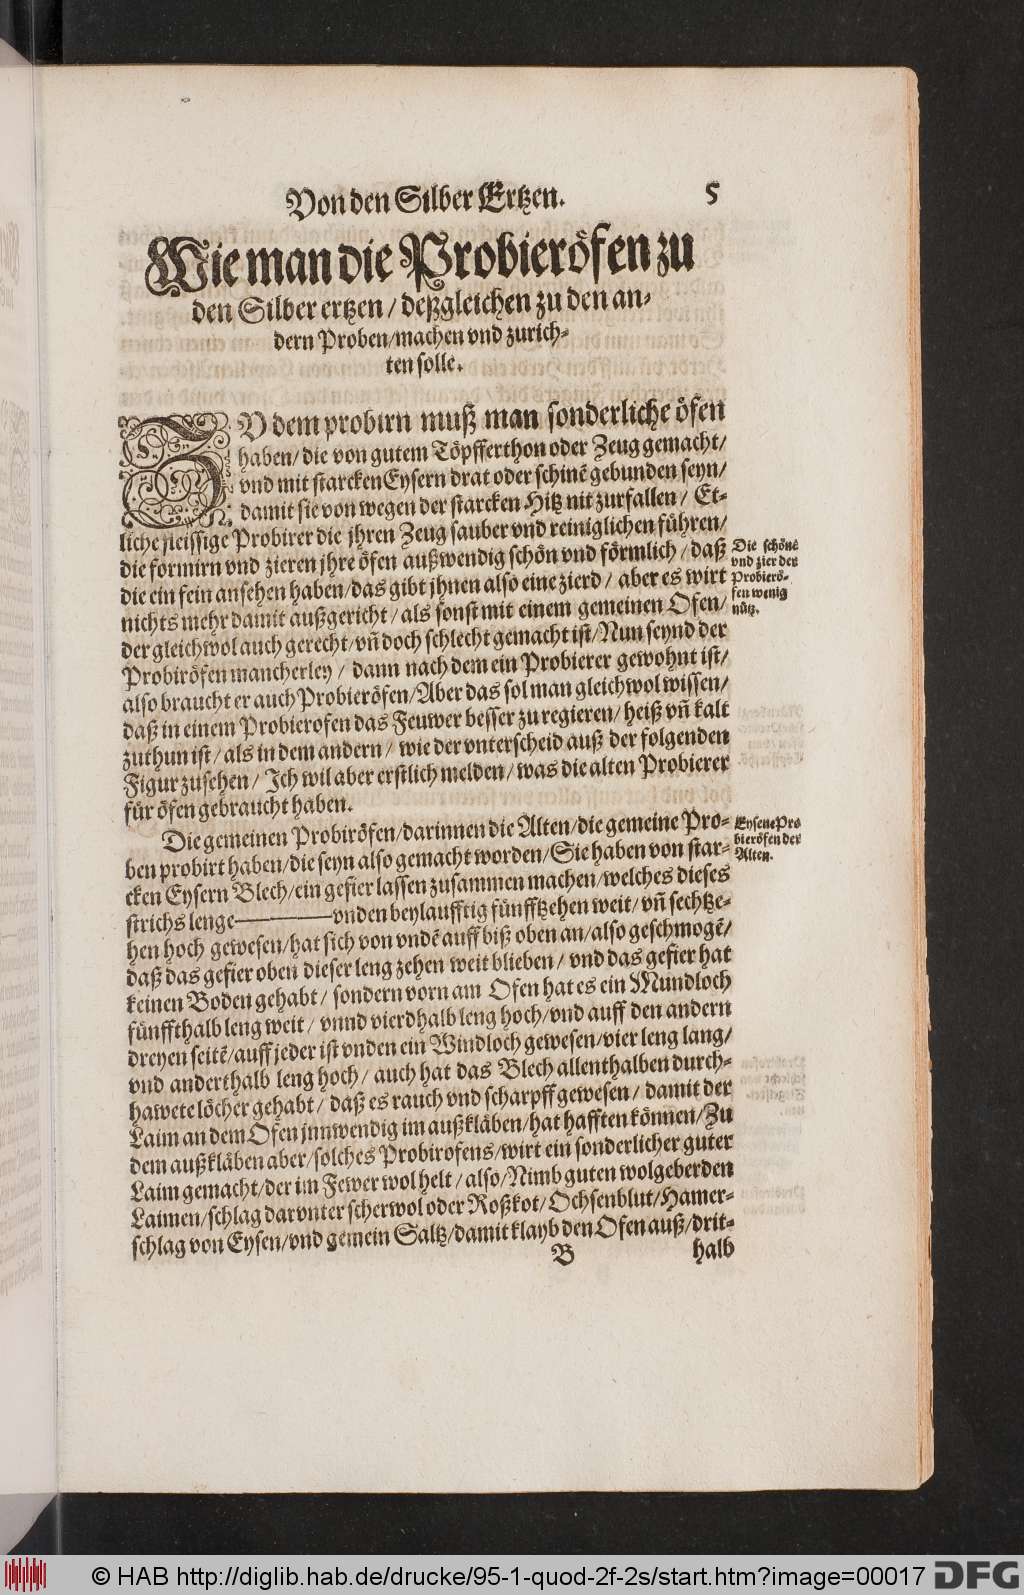 Von den Silber Ertzen. 5
Wie man die Probieröfen zu
den Silber ertzen / deßgleichen zu den an-
dern Proben/machen vnd zurich-
ten solle.
ZV dem probirn muß man sonderliche öfen
haben/die von gutem Töpfferthon oder Zeug gemacht/
vnd mit starcken Eysern drat oder schinē gebunden seyn/
damit sie von wegen der starcken Hitz nit zurfallen / Et-
liche fleissige Probirer die jhren Zeug sauber vnd reiniglichen führen/
die formirn vnd zieren jhre öfen außwendig schön vnd förmlich / daß
die ein fein ansehen haben/das gibt jhnen also eine zierd / aber es wirt
nichts mehr damit außgericht / als sonst mit einem gemeinen Ofen/
der gleichwol auch gerecht/vn̄ doch schlecht gemacht ist/Nun seynd der
Probiröfen mancherley / dann nach dem ein Probierer gewohnt ist/
also braucht er auch Probieröfen/Aber das sol man gleichwol wissen/
daß in einem Probierofen das Feuwer besser zu regieren/heiß vn̄ kalt
zuthun ist/als in dem andern/ wie der vnterscheid auß der folgenden
Figur zusehen / Ich wil aber erstlich melden/was die alten Probierer
für öfen gebraucht haben.
Die schöne
vnd zier der
Probierö-
fen wenig
nütz.
Die gemeinen Probiröfen/darinnen die Alten/die gemeine Pro-
ben probirt haben/die seyn also gemacht worden/Sie haben von star-
cken Eysern Blech/ein gefier lassen zusammen machen/welches dieses
strichs lenge———vnden beylaufftig fünfftzehen weit/vn̄ sechtze-
hen hoch gewesen/hat sich von vndē auff biß oben an/also geschmogē/
daß das gefier oben dieser leng zehen weit blieben / vnd das gefier hat
keinen Boden gehabt / sondern vorn am Ofen hat es ein Mundloch
fünffthalb leng weit / vnnd vierdhalb leng hoch/vnd auff den andern
dreyen seitē/auff jeder ist vnden ein Windloch gewesen/vier leng lang/
vnd anderthalb leng hoch / auch hat das Blech allenthalben durch-
hawete löcher gehabt / daß es rauch vnd scharpff gewesen / damit der
Laim an dem Ofen jnnwendig im außkläben/hat hafften können/Zu
dem außkläben aber/solches Probirofens/wirt ein sonderlicher guter
Laim gemacht/der im Fewer wol helt / also/Nimb guten wolgeberden
Laimen/schlag darvnter scherwol oder Roßkot/Ochsenblut/Hamer-
schlag von Eysen/vnd gemein Saltz/damit klayb den Ofen auß/drit-
Eysene Pro
bieröfen der
Alten.
B halb
© HAB http://diglib.hab.de/drucke/95-1-quod-2f-2s/start.htm?image=00017 DFG